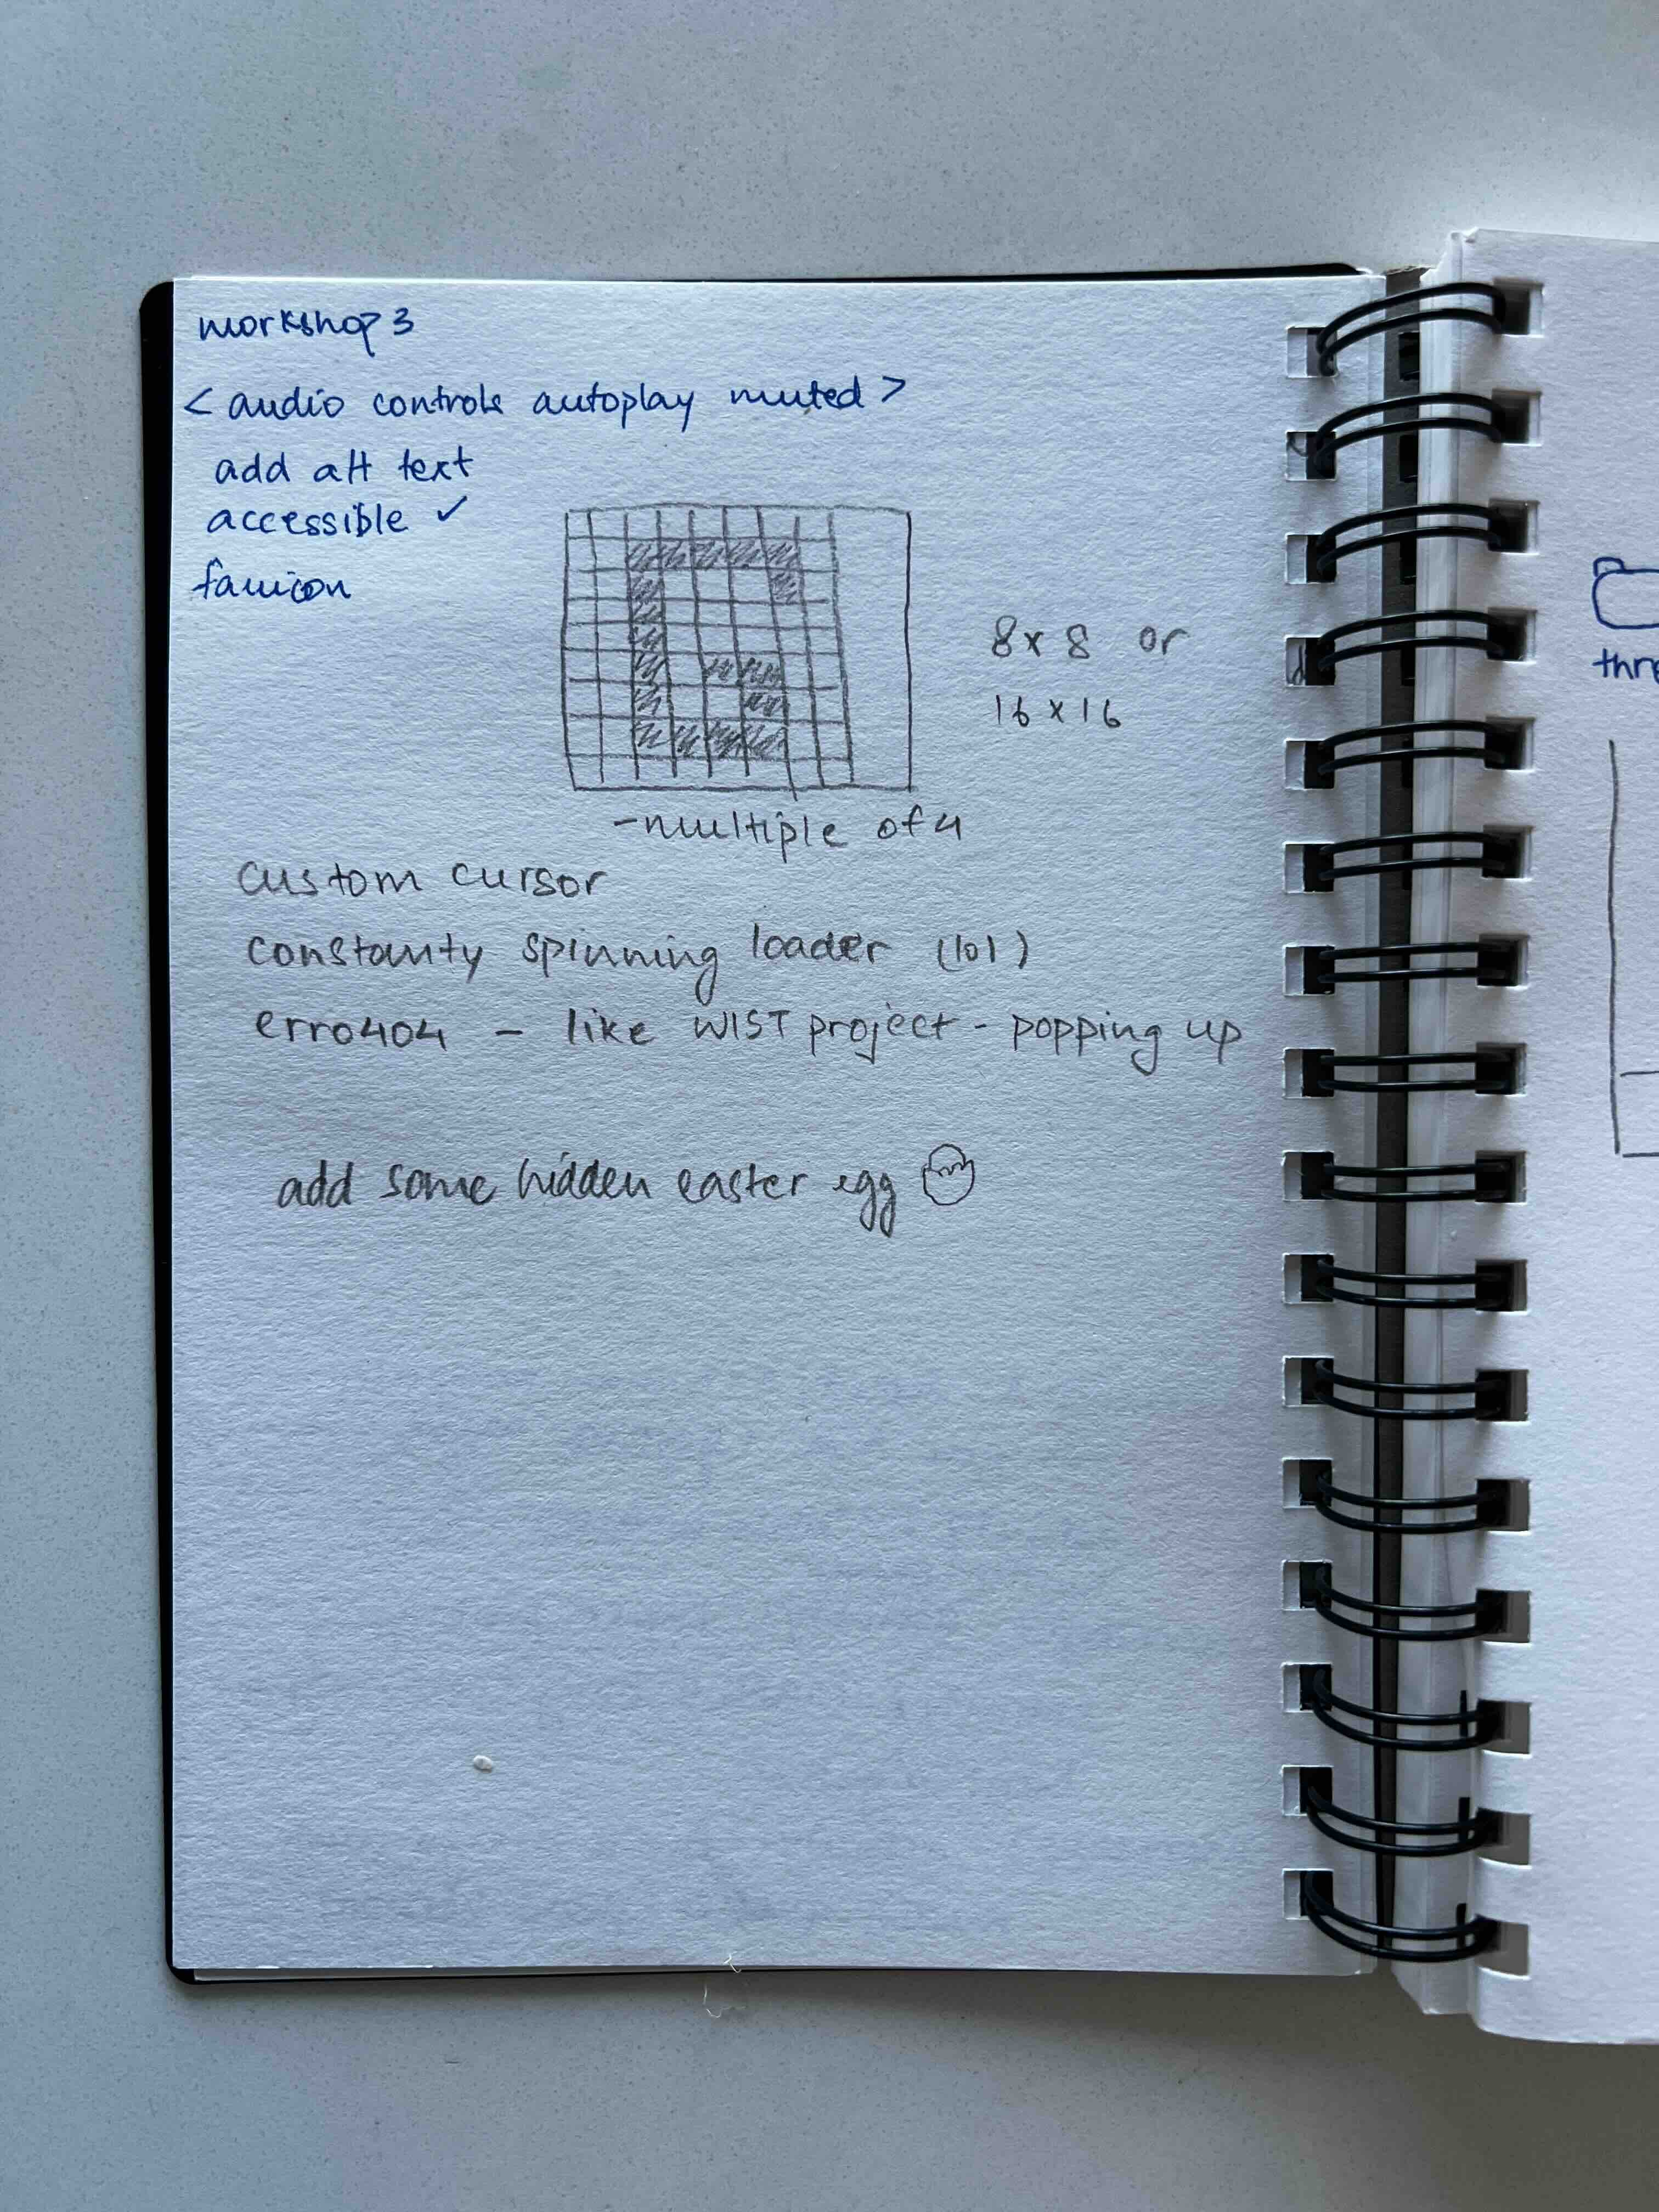 workshop 3
< audio controls autoplay muted >
add alt text
accessible ✓
favicon
8 x 8 or
16 x 16
- multiple of 4
custom cursor
constanty spinning loader (lol)
erro404 - like WIST project - popping up
add some hidden easter egg
thre